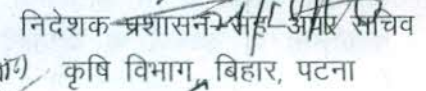 निदेशक प्रशासन-सह-अपर सचिव
कृषि विभाग, बिहार, पटना